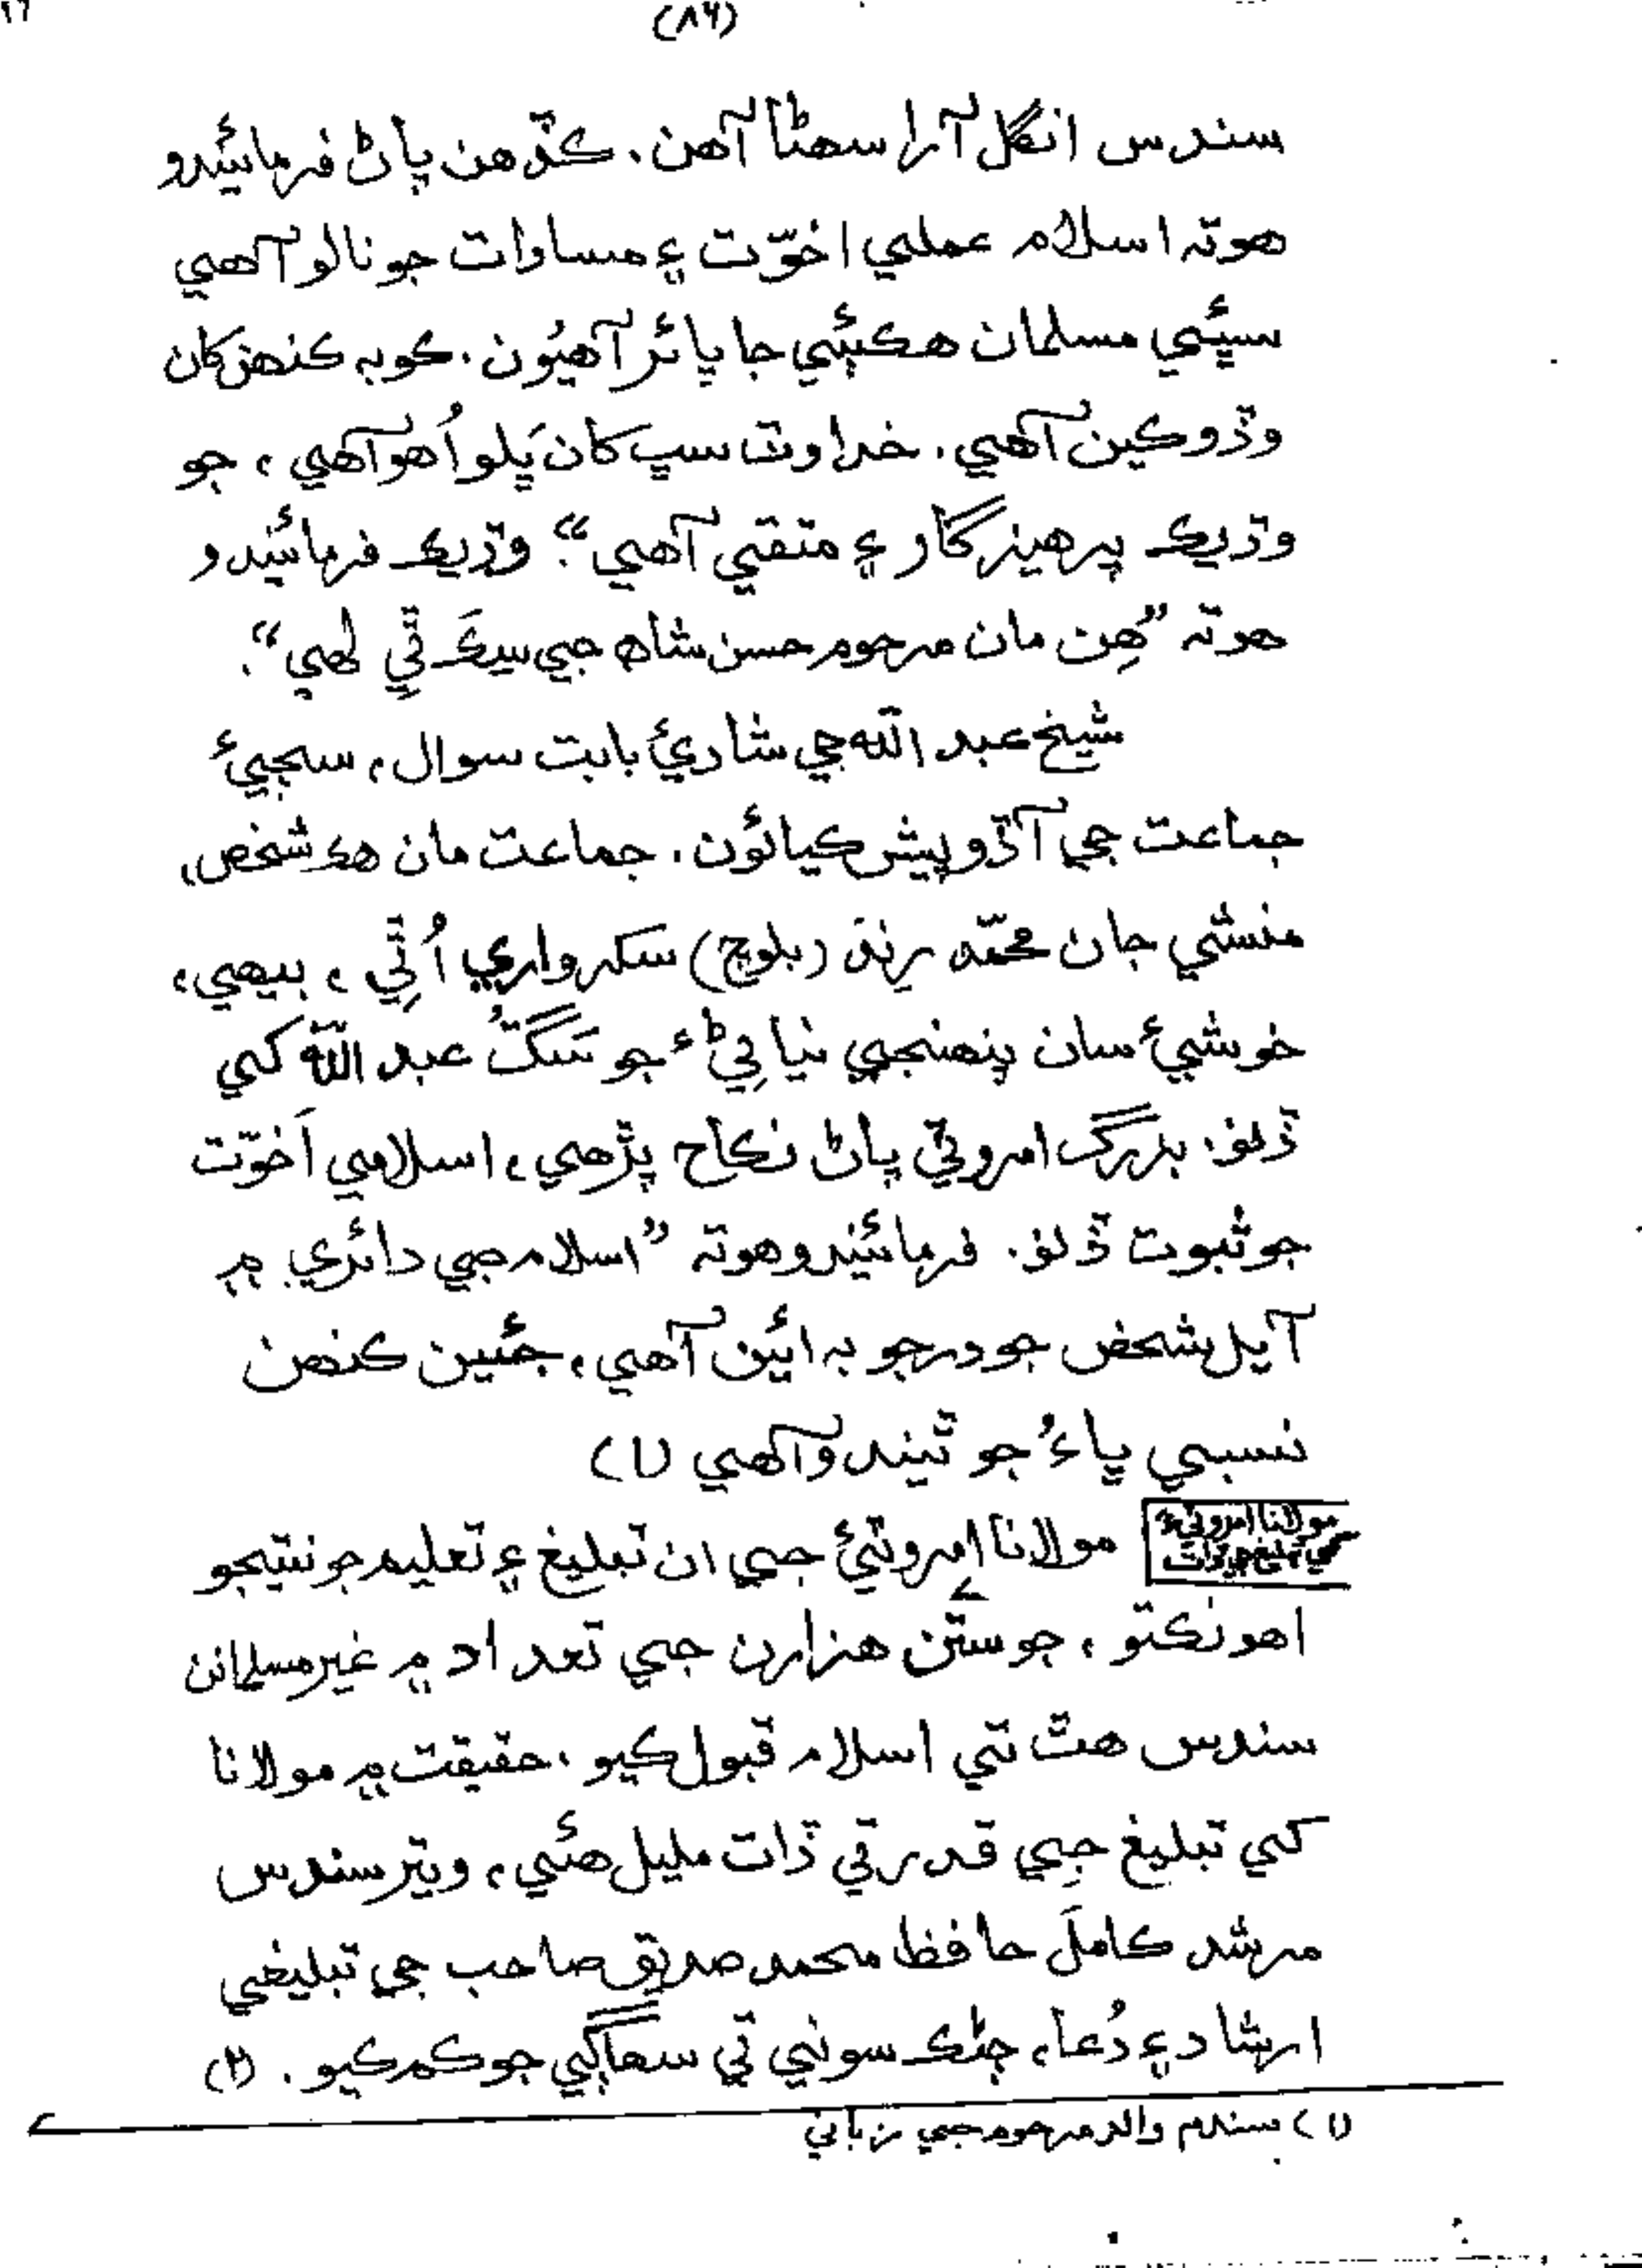 (۸۶)
سندس انگل آرا سهڻا آهن. ڪڏهن پاڻ فرمائيندو
هوته اسلام عملي اخوّت ۽ مساوات جو نالو آهي
سڀئي مسلمان هڪٻئي جا ڀائر آهيُون. ڪوبه ڪنهن کان
وڏو ڪين آهي. خدا وٽ سڀ کان ڀَلو اُهو آهي، جو
وڌيڪ پرهيزگار ۽ متقي آهي“. وڌيڪ فرمائيندو
هوته ”هِن مان مرحوم حسن شاهه جي سِڪَ ٿي لهي“.
شيخ عبدالله جي شاديءَ بابت سوال، سڄيءَ
جماعت جي آڏو پيش ڪيائون. جماعت مان هڪ شخص،
منشي جان محمّد رند (بلوچ) سکر واري اُٿِي، بيهي،
خوشيءَ سان پنهنجي نياڻيءَ جو سَڱُ عبدالله کي
ڏنو. بزرگ امروٽي پاڻ نڪاح پڙهي، اسلامي اَخوّت
جو ثبوت ڏنو. فرمائيندو هوته ”اسلام جي دائري ۾
آيل شخص جو درجو به ائين آهي، جئين ڪنهن
نسبي ڀاءُ جو ٿيندو آهي (۱)
مولانا امروٽيءَ جي ان تبليغ ۽ تعليم جو نتيجو
اهو نڪتو، جو ستن هزارن جي تعداد ۾ غير مسلمانن
سندس هٿ تي اسلام قبول ڪيو. حقيقت ۾ مولانا
کي تبليغ جِي قدرتي ڏات مليل هئي، ويتر سندس
مرشد ڪاملَ حافظ محمد صديق صاحب جي تبليغي
ارشاد ۽ دُعا، ڄڻڪ سوني تي سهاڳي جو ڪم ڪيو. (۲)
(۱) سندم والد مرحوم جي زباني